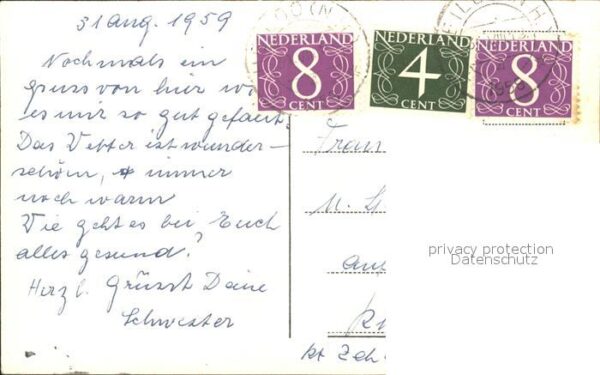 31 aug. 1959
Nochmals ein
gruss von hier wo
es mir so gut gefällt.
Das Vetter ist wunder-
schön, immer
noch warm
Wie geht es bei Euch
alles gesund?
Herzl. Grüsst Deine
Schwester
NEDERLAND
8
CENT
NEDERLAND
4
CENT
NEDERLAND
8
CENT
Frau
privacy protection
Datenschutz